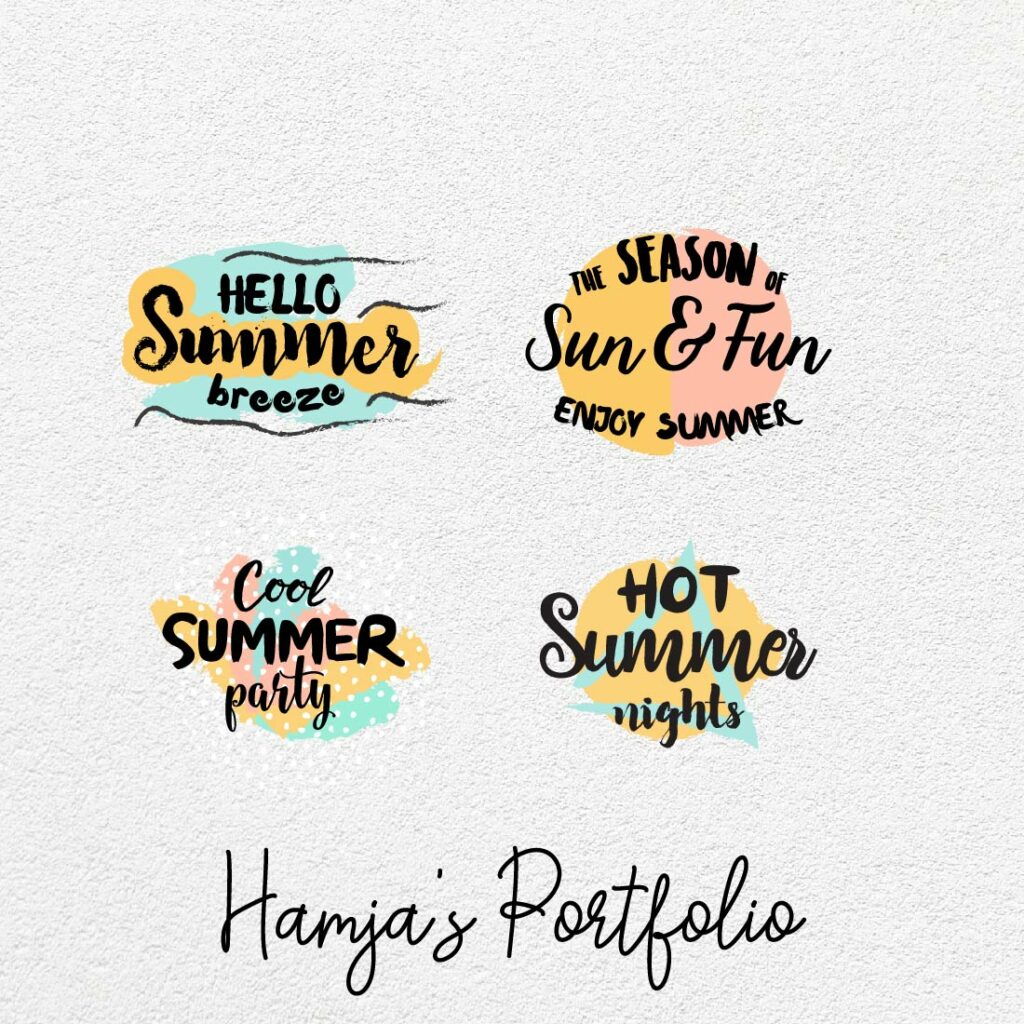 HELLO
Summer
breeze
THE SEASON OF
Sun & Fun
ENJOY SUMMER
Cool
SUMMER
party
HOT
Summer
nights
Hamja's Portfolio